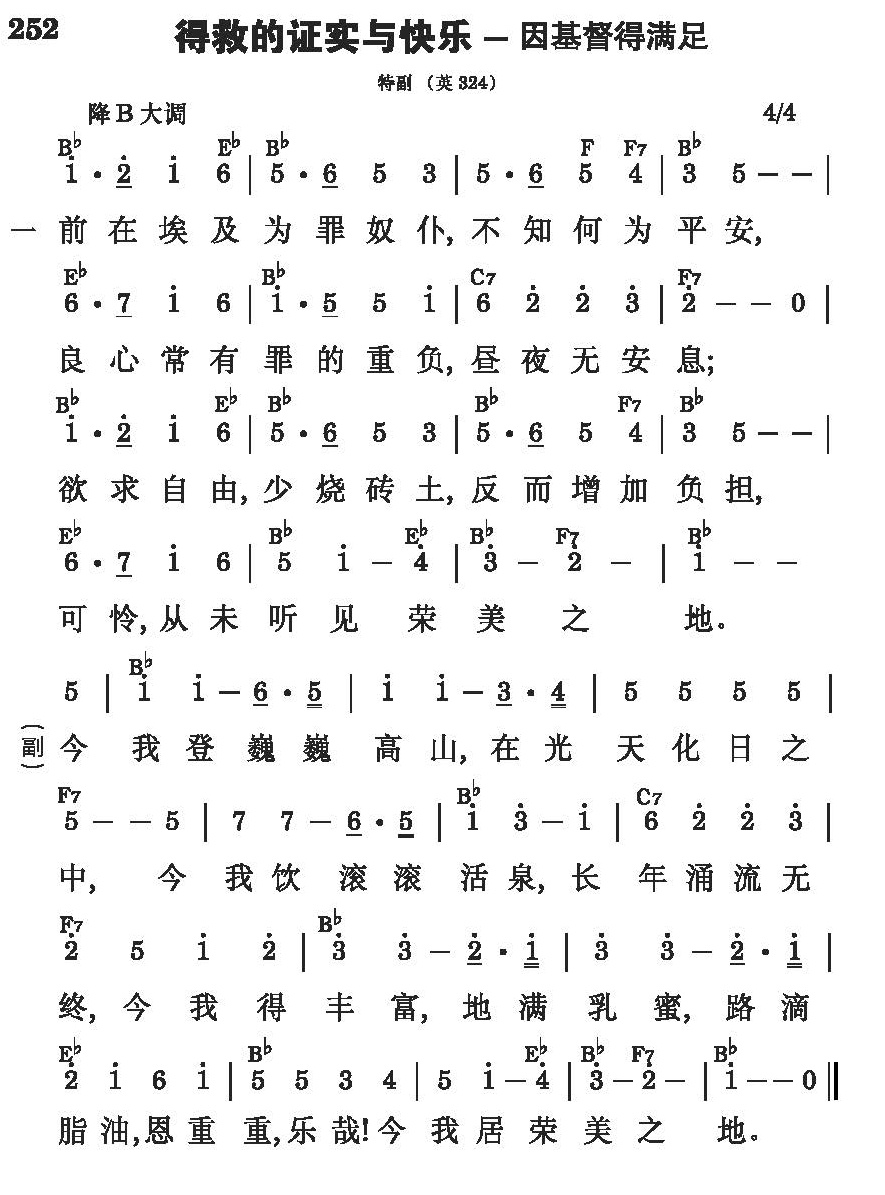 252
得救的证实与快乐 – 因基督得满足
特副 （英 324）
降 B 大调 4/4
B♭ E♭ B♭ F F7 B♭
i · 2̇ i 6 | 5 · 6 5 3 | 5 · 6 5 4 | 3 5 – – |
一 前在埃及为罪奴仆, 不知何为平安,
E♭ B♭ C7 F7
6 · 7 i 6 | i · 5 5 i | 6 2̇ 2̇ 3̇ | 2̇ – – 0 |
良心常有罪的重负, 昼夜无安息;
B♭ E♭ B♭ B♭ F7 B♭
i · 2̇ i 6 | 5 · 6 5 3 | 5 · 6 5 4 | 3 5 – – |
欲求自由, 少烧砖土, 反而增加负担,
E♭ B♭ E♭ B♭ F7 B♭
6 · 7 i 6 | 5 i – 4̇ | 3̇ – 2̇ – | i – –
可怜, 从未听见荣美之地。
B♭
5 | i i – 6 · 5 | i i – 3 · 4 | 5 5 5 5 |
(副) 今我登巍巍高山, 在光天化日之
F7 B♭ C7
5 – – 5 | 7 7 – 6 · 5 | i 3̇ – i | 6 2̇ 2̇ 3̇ |
中, 今我饮滚滚活泉, 长年涌流无
F7 B♭
2̇ 5 i 2̇ | 3̇ 3̇ – 2̇ · i | 3̇ 3̇ – 2̇ · i |
终, 今我得丰富, 地满乳蜜, 路滴
E♭ B♭ E♭ B♭ F7 B♭
2̇ i 6 i | 5 5 3 4 | 5 i – 4̇ | 3̇ – 2̇ – | i – – 0 ‖
脂油, 恩重重, 乐哉! 今我居荣美之地。